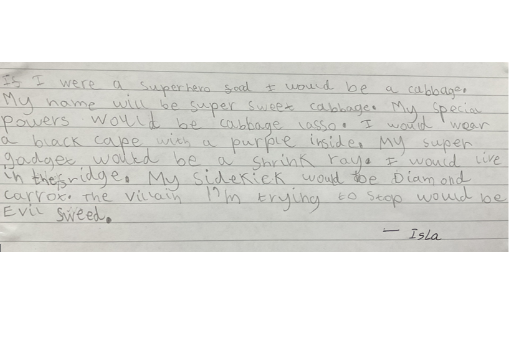 If I were a superhero seal I would be a cabbage.
My name will be super sweet cabbage. My special
powers would be cabbage lasso. I would wear
a black cape with a purple inside. My super
gadget would be a shrink ray. I would live
in the fridge. My sidekick would be Diamond
carrox. The villain I'm trying to stop would be
Evil sweed.
— Isla